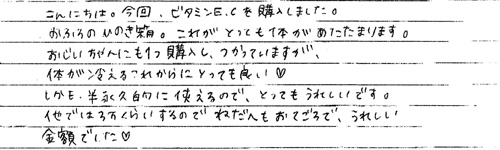 こんにちは。今回、ビタミンE.Cを購入しました。
おふろの ひのき箱。これが とっても体が あたたまります。
おじいちゃんにも1つ購入し、つかっていますが、
体が冷えるこれからにとっても良い♡
しかも、半永久的に使えるので、とってもうれしいです。
他では3万くらいするので ねだんもおてごろで、うれしい
金額でした♡